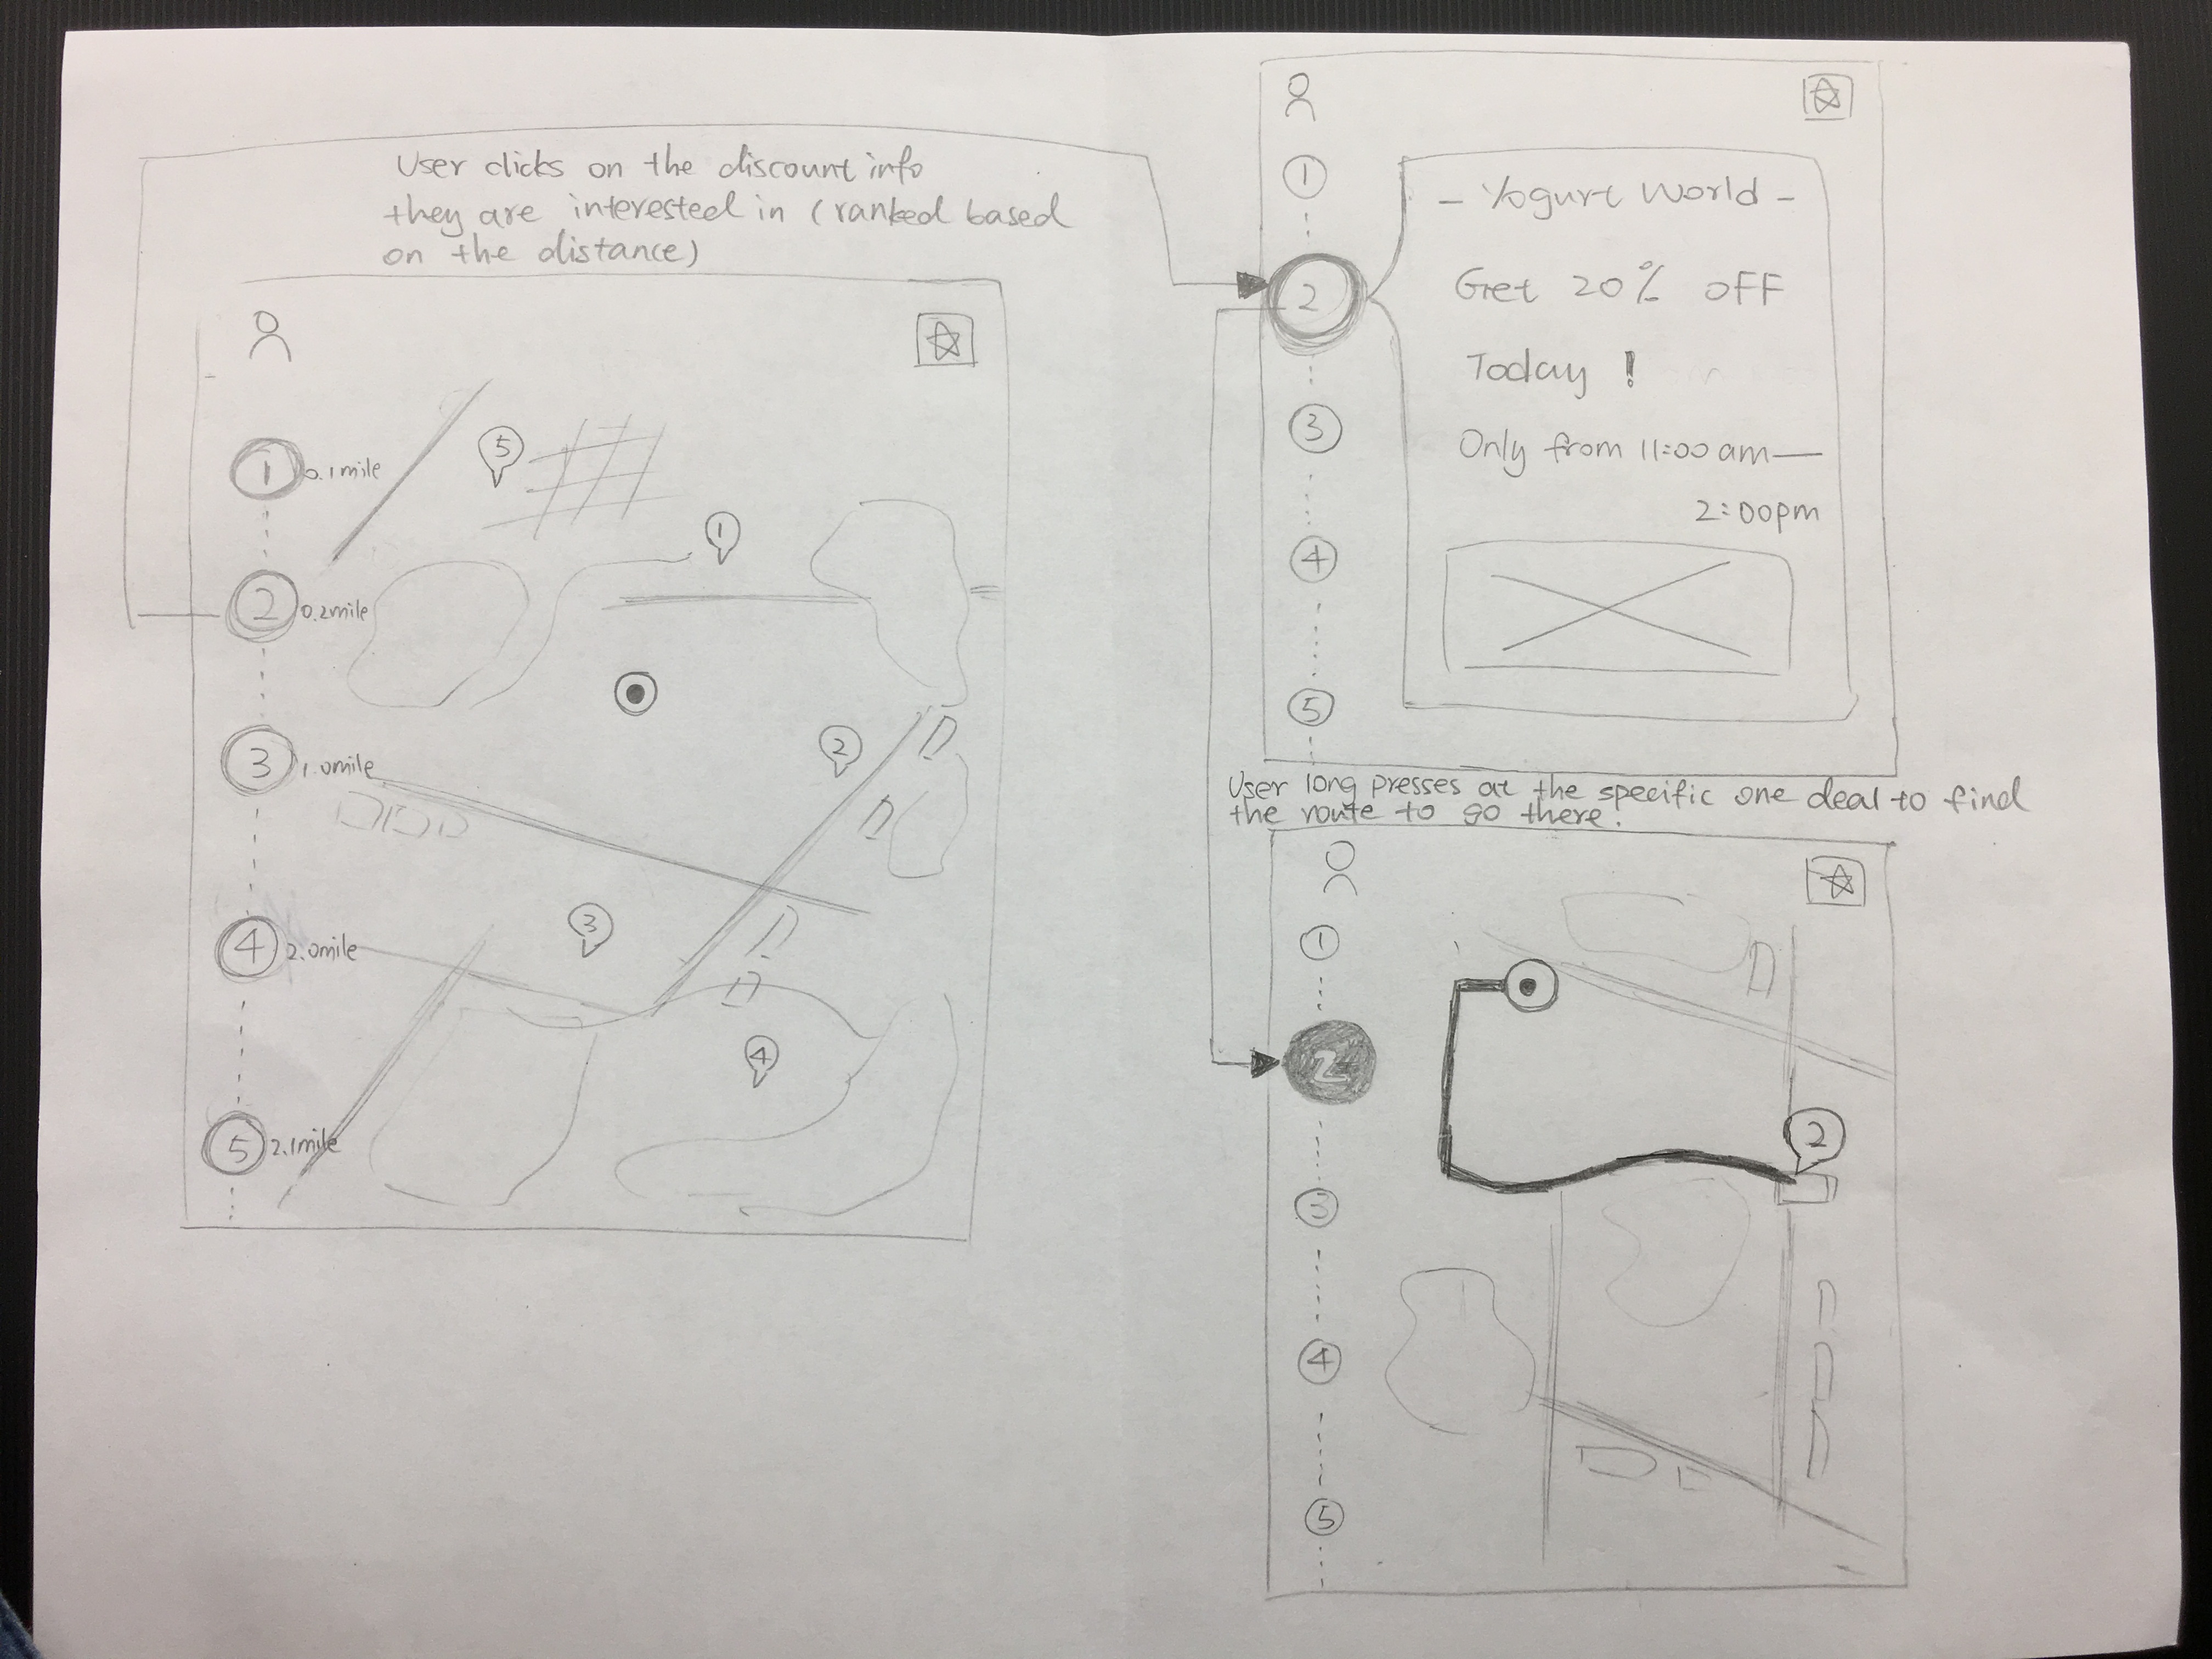 User clicks on the discount info
they are interested in (ranked based
on the distance)
1 0.1mile
2 0.2mile
3 1.0mile
4 2.0mile
5 2.1mile
5
1
2
3
4
1
2
3
4
5
- Yogurt World -
Get 20% off
Today !
Only from 11:00 am —
2:00pm
User long presses at the specific one deal to find
the route to go there.
1
2
3
4
5
2